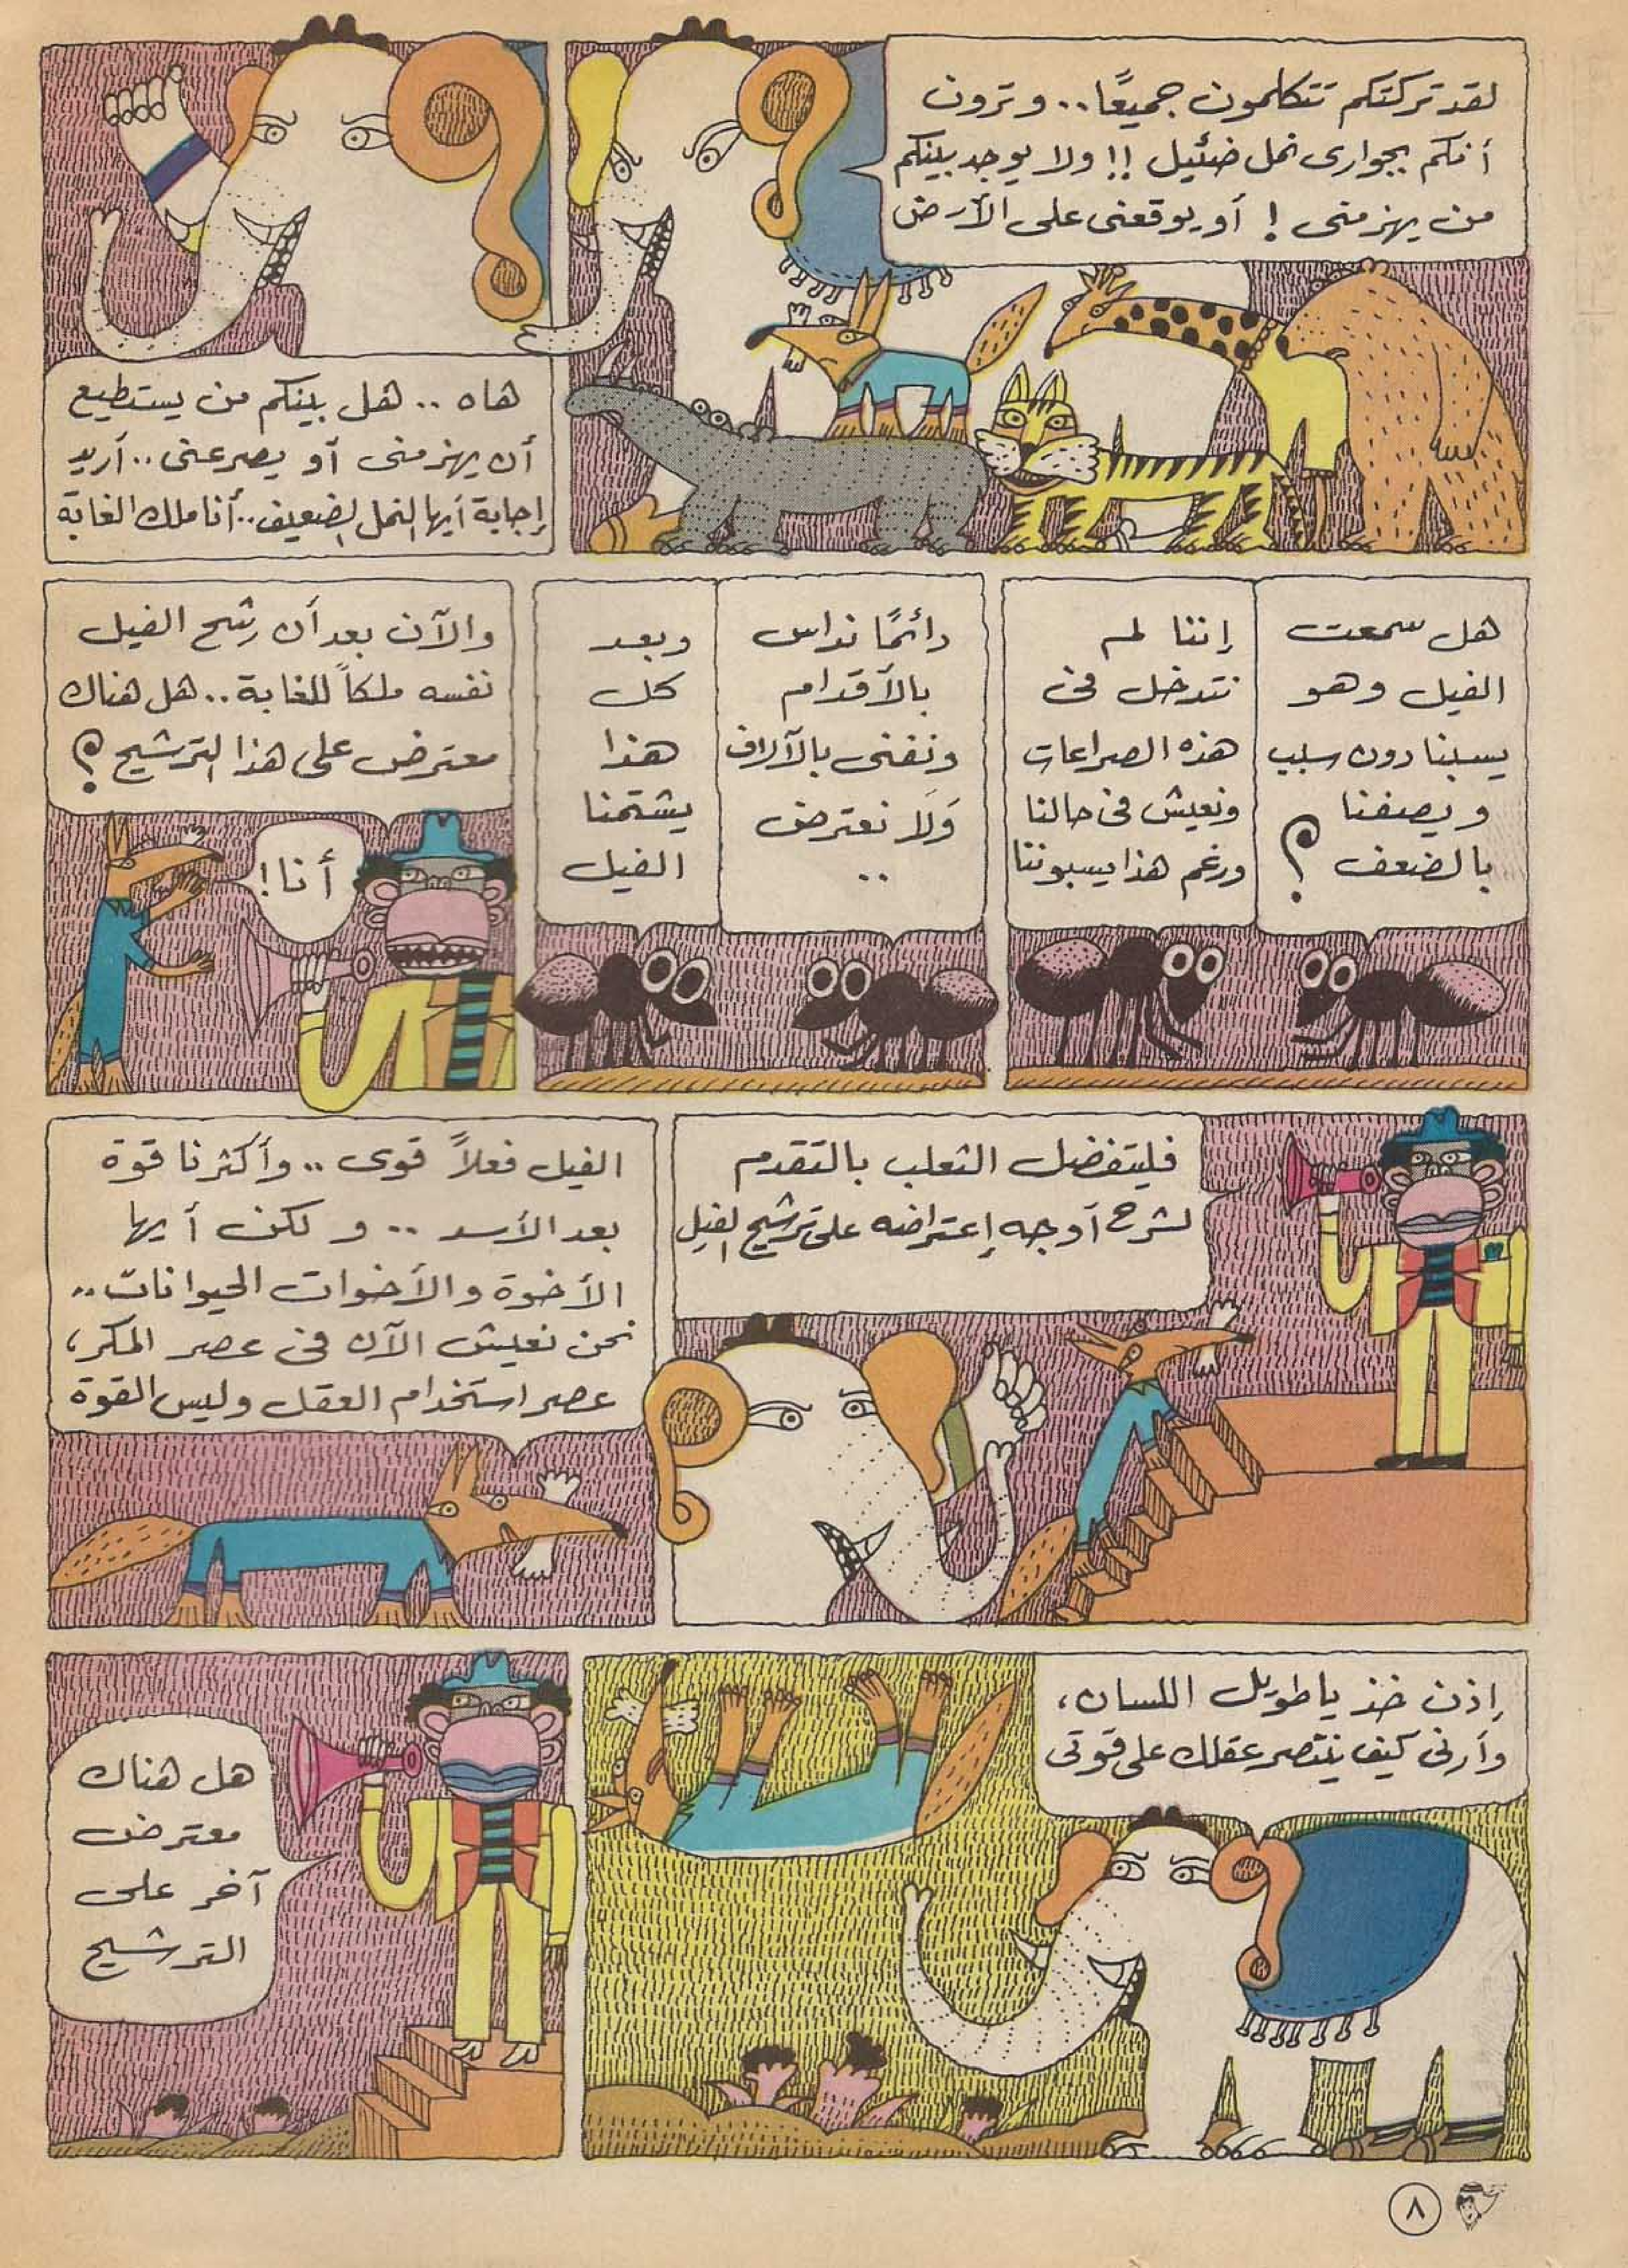 لقد تركتكم تتكلمون جميعًا.. وترون
أنكم بجوارى نمل ضئيل !! ولا يوجد بينكم
من يهزمنى ! أو يوقعنى على الأرض
هاه .. هل بينكم من يستطيع
أن يهزمنى أو يصرعنى .. أريد
إجابة أيها النمل الضعيف .. أنا ملك الغابة
هل سمعت
الفيل وهو
يسبنا دون سبب
ويصفنا
بالضعف ؟
إننا لم
نتدخل فى
هذه الصراعات
ونعيش فى حالنا
ورغم هذا يسبوننا
دائمًا نداس
بالأقدام
ونفنى بالآلاف
وَلَا نعترض
..
وبعد
كل
هذا
يشتمنا
الفيل
والآن بعد أن رشح الفيل
نفسه ملكاً للغابة .. هل هناك
معترض على هذا الترشيح ؟
أنا !
فليتفضل الثعلب بالتقدم
لشرح أوجه إعتراضه على ترشيح الفيل
الفيل فعلاً قوى .. وأكثرنا قوة
بعد الأسد .. ولكن أيها
الأخوة والأخوات الحيوانات ..
نحن نعيش الآن فى عصر المكر،
عصر استخدام العقل وليس القوة
إذن خذ يا طويل اللسان،
وأرنى كيف ينتصر عقلك على قوتى
هل هناك
معترض
آخر على
الترشيح
٨